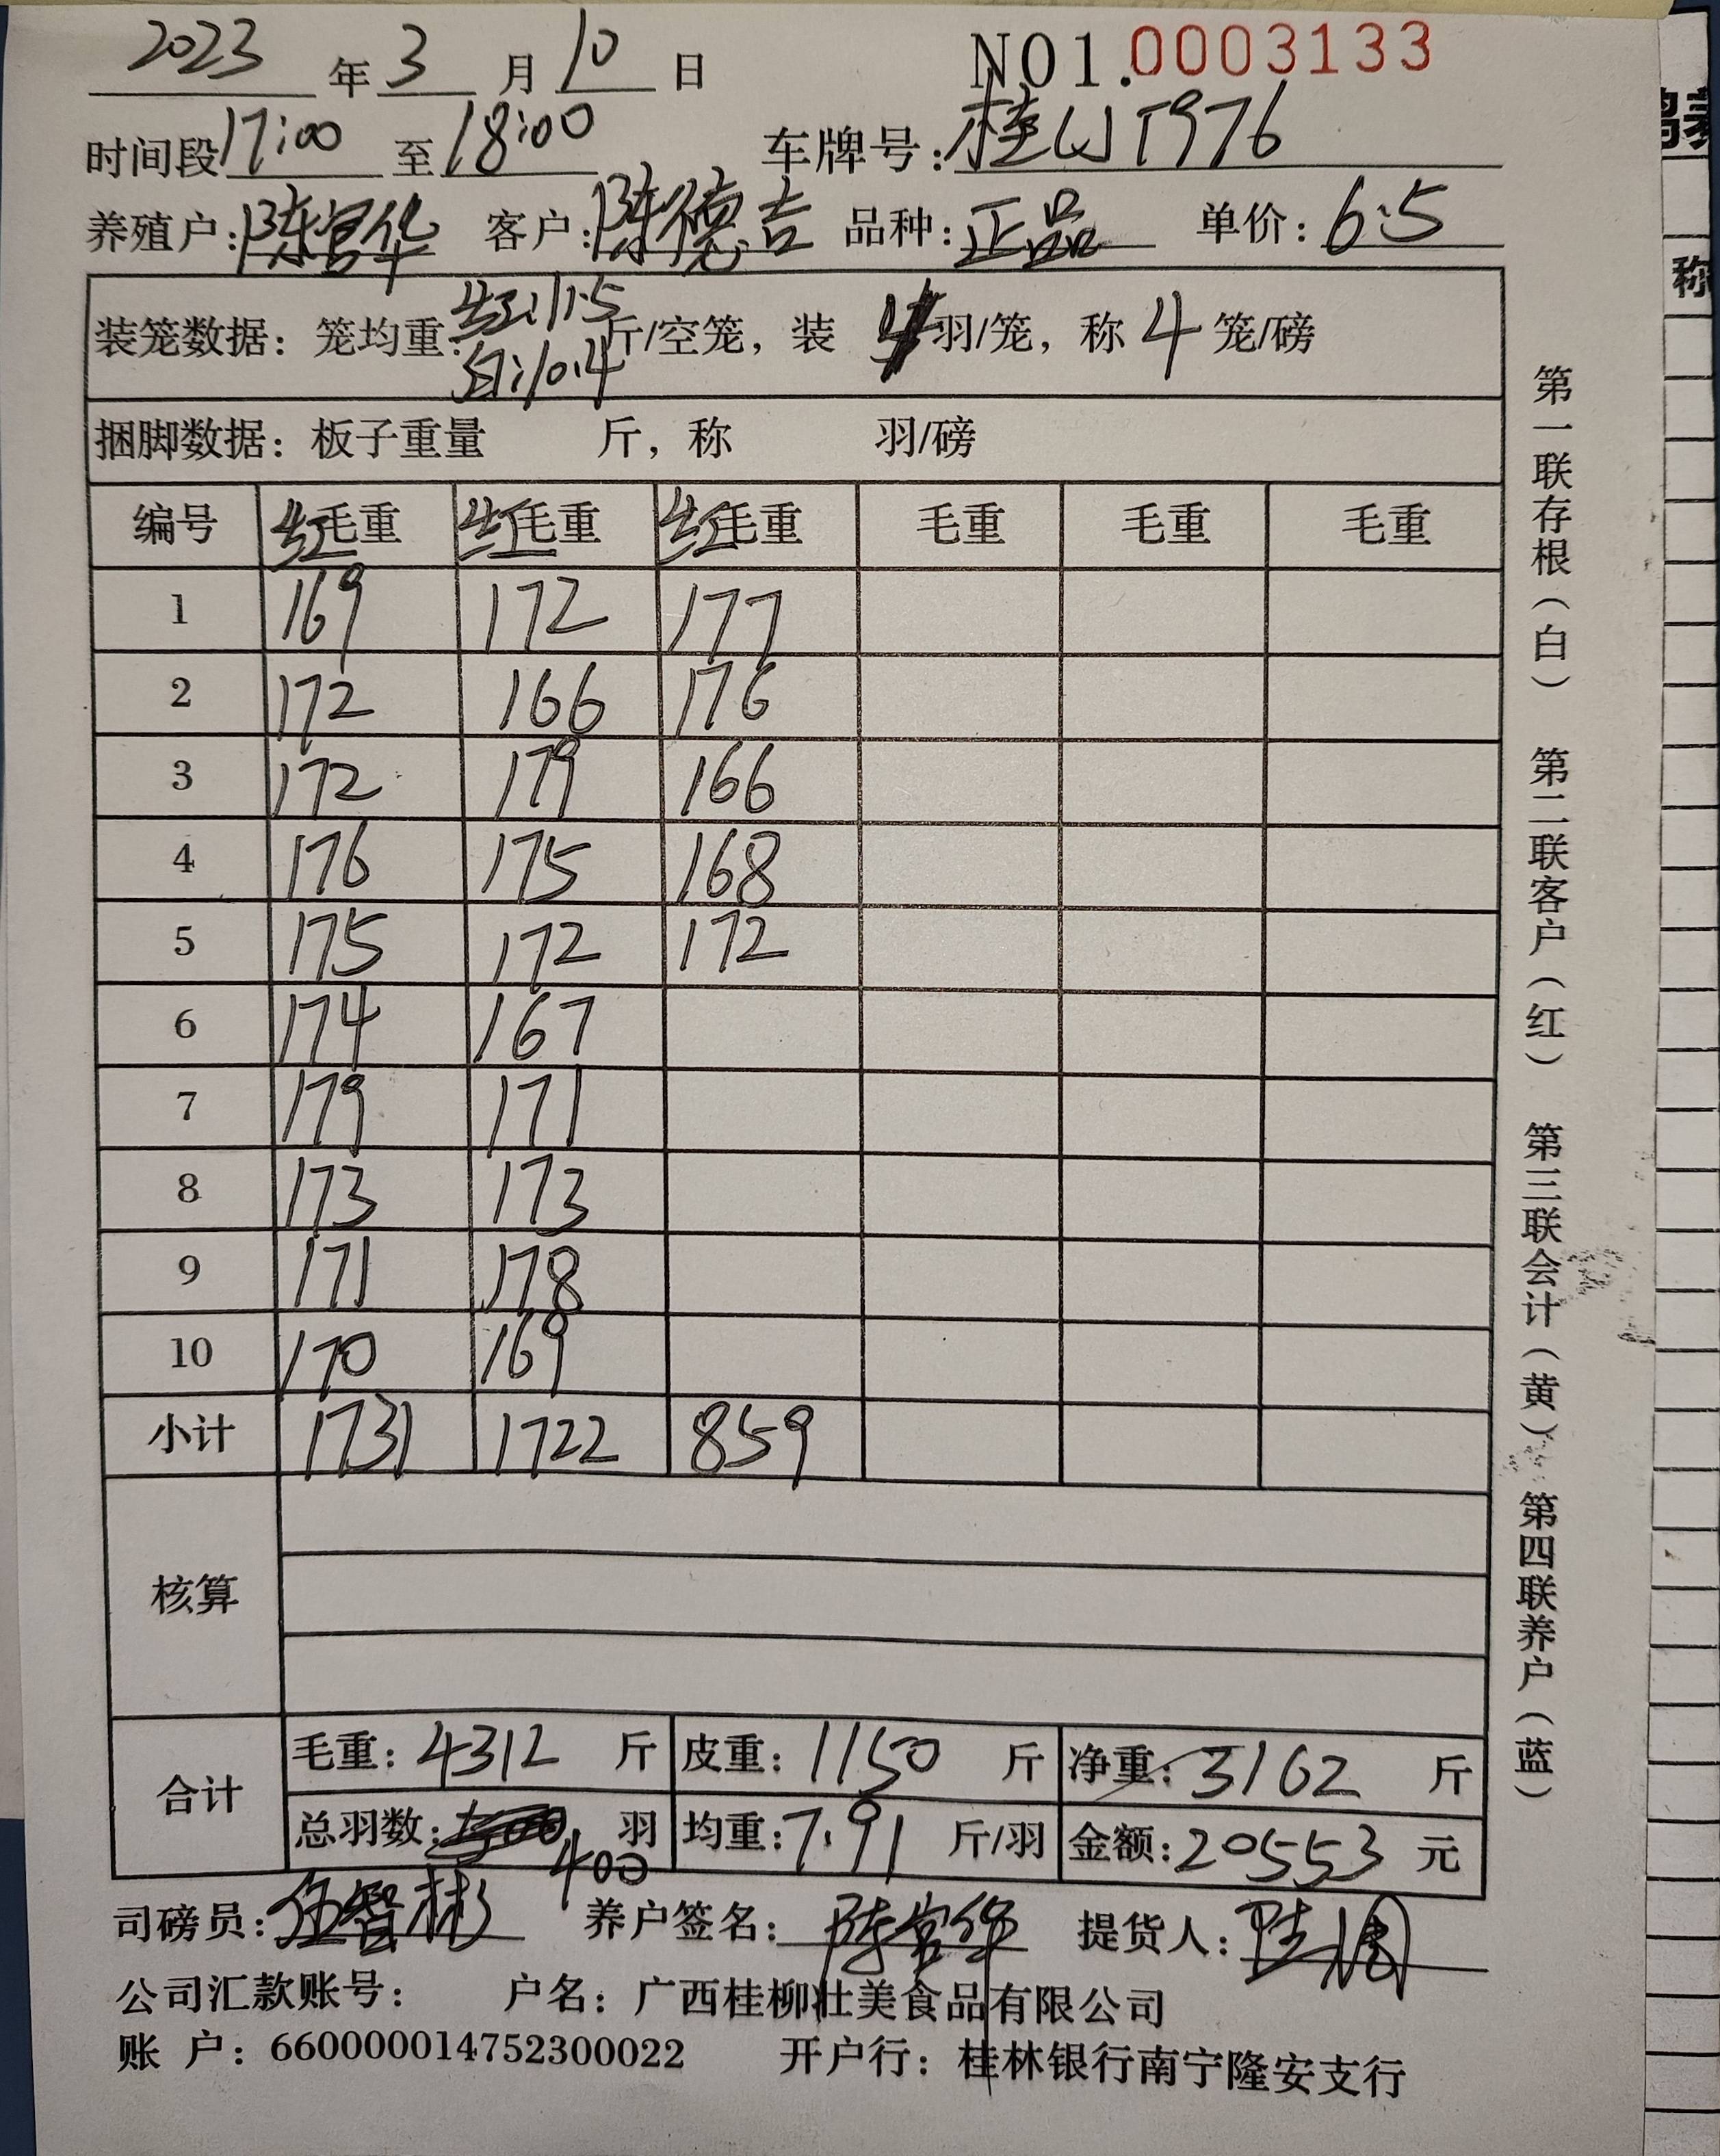 2023 年 3 月 10 日 NO1.0003133
时间段 17:00 至 18:00 车牌号: 桂 T976
养殖户: 陈官华 客户: 陈德吉 品种: 正品 单价: 6.5
红:11.5
装笼数据: 笼均重: 斤/空笼, 装 羽/笼, 称 4 笼/磅
白:10.4
捆脚数据: 板子重量 斤, 称 羽/磅
编号 红毛重 红毛重 红毛重 毛重 毛重 毛重
1 169 172 177
2 172 166 176
3 172 179 166
4 176 175 168
5 175 172 172
6 174 167
7 179 171
8 173 173
9 171 178
10 170 169
小计 1731 1722 859
核算
合计
毛重: 4312 斤 皮重: 1150 斤 净重: 3162 斤
总羽数: 400 羽 均重: 7.91 斤/羽 金额: 20553 元
司磅员: 伍智彬 养户签名: 陈官华 提货人:
公司汇款账号: 户名: 广西桂柳壮美食品有限公司
账 户: 660000014752300022 开户行: 桂林银行南宁隆安支行
第一联存根(白) 第二联客户(红) 第三联会计(黄) 第四联养户(蓝)
称